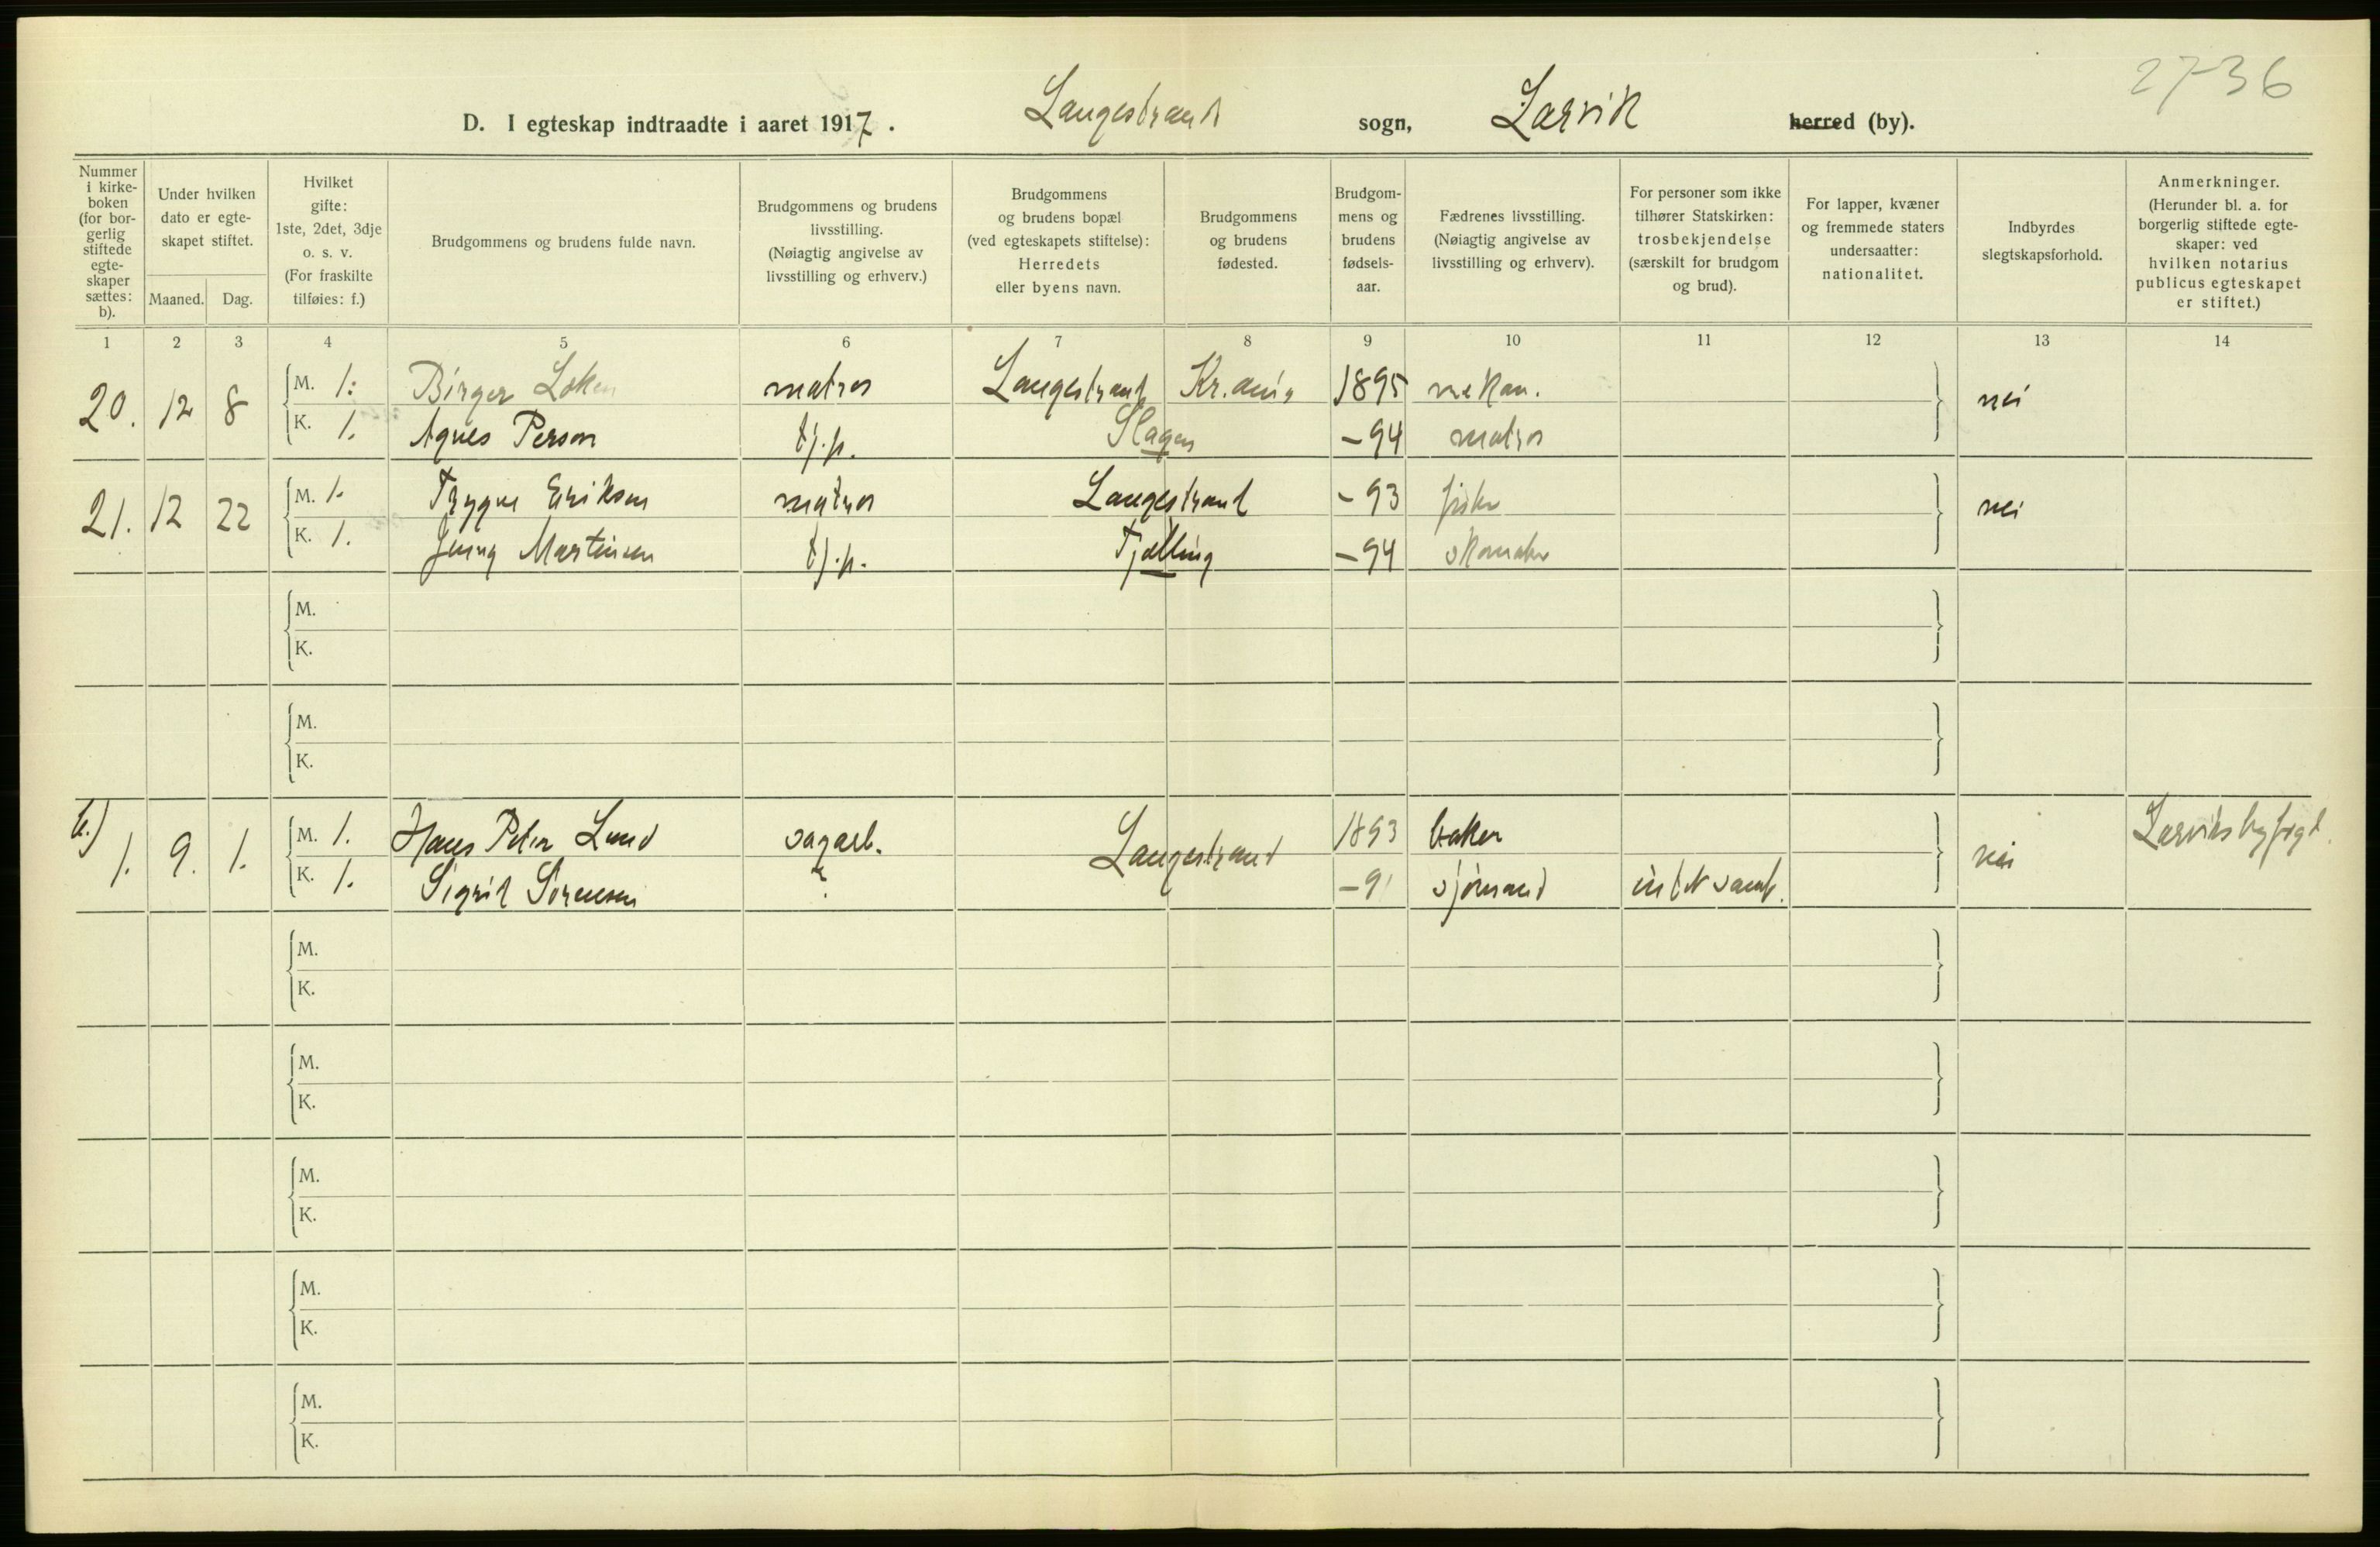 27-36
D. I egteskap indtraadte i aaret 1917. Langestrand sogn, Larvik herred (by).
Nummer i kirkeboken (for borgerlig stiftede egteskaper sættes: b).
Under hvilken dato er egteskapet stiftet.
Maaned. Dag.
Hvilket gifte: 1ste, 2det, 3dje o. s. v. (For fraskilte tilføies: f.)
Brudgommens og brudens fulde navn.
Brudgommens og brudens livsstilling. (Nøiagtig angivelse av livsstilling og erhverv.)
Brudgommens og brudens bopæl (ved egteskapets stiftelse): Herredets eller byens navn.
Brudgommens og brudens fødested.
Brudgommens og brudens fødselsaar.
Fædrenes livsstilling. (Nøiagtig angivelse av livsstilling og erhverv).
For personer som ikke tilhører Statskirken: trosbekjendelse (særskilt for brudgom og brud).
For lapper, kvæner og fremmede staters undersaatter: nationalitet.
Indbyrdes slegtskapsforhold.
Anmerkninger. (Herunder bl. a. for borgerlig stiftede egteskaper: ved hvilken notarius publicus egteskapet er stiftet.)
1 2 3 4 5 6 7 8 9 10 11 12 13 14
20. 12 8 M. 1. Birger Løken matros Langestrand Kr.ania 1895 mekan. nei
K. 1. Agnes Person tj.p. Slagen -94 matros
21. 12 22 M. 1. Trygve Eriksen matros Langestrand -93 fisker nei
K. 1. Jenny Martinsen tj.p. Tjølling -94 skomaker
M.
K.
M.
K.
b.) 1. 9. 1. M. 1. Hans Peter Lund sagarb. Langestrand 1893 baker nei Larviks byfogd.
K. 1. Sigrid Sørensen ? -91 sjømand int. samf.
M.
K.
M.
K.
M.
K.
M.
K.
M.
K.